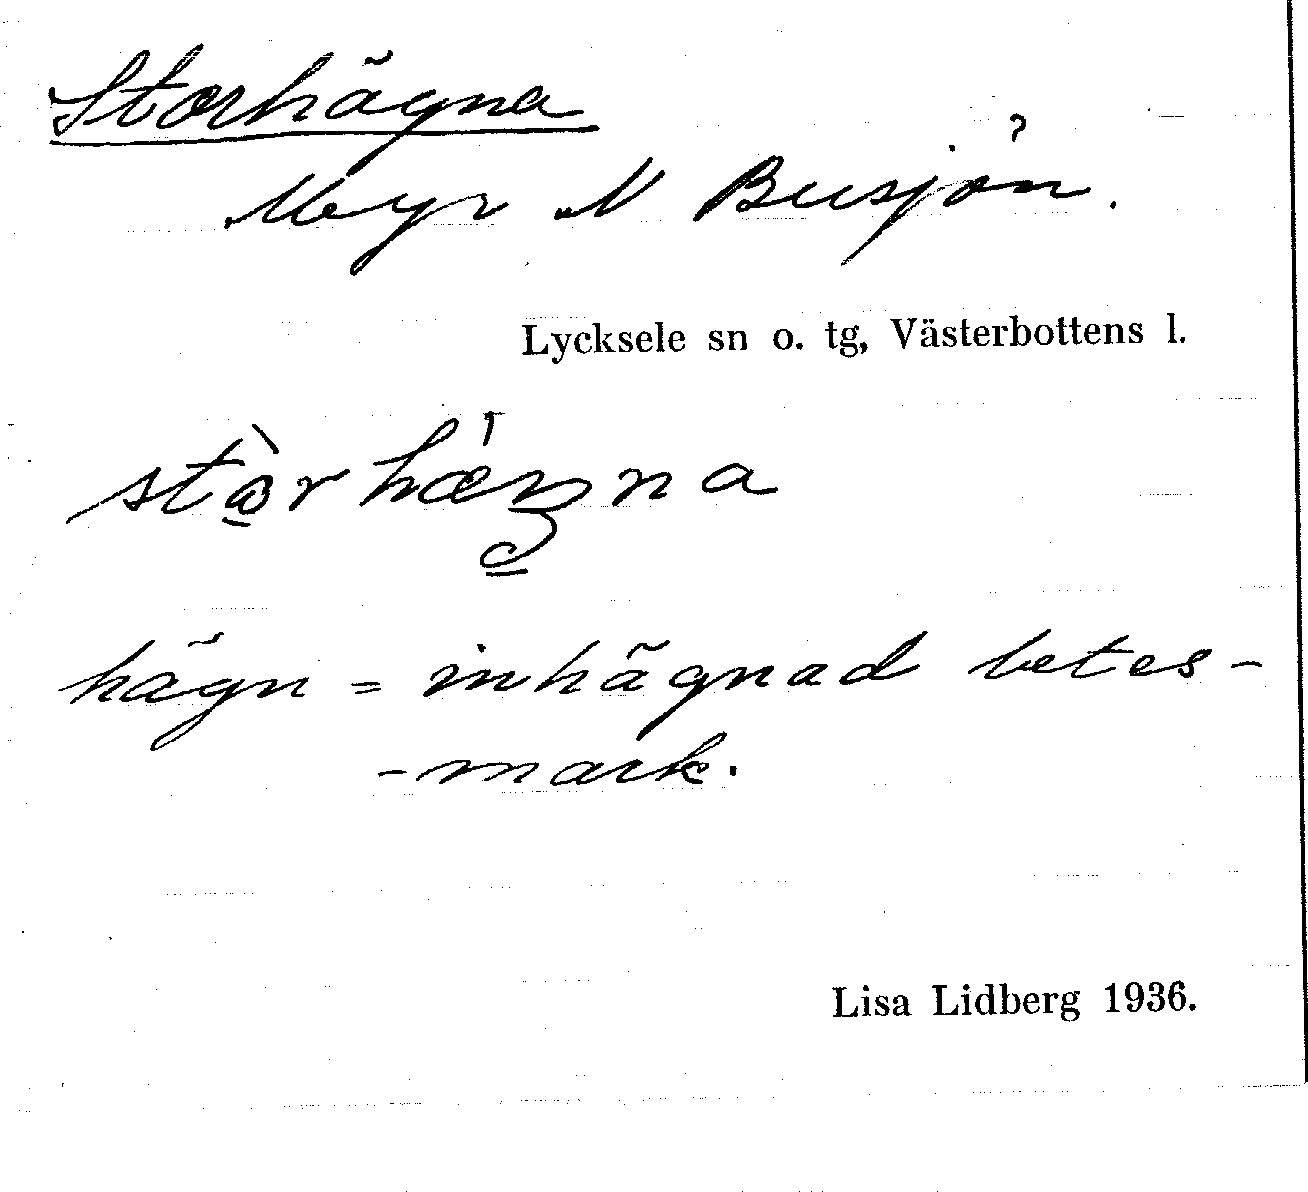 Storhägna
Myr N Busjön.
Lycksele sn o. tg, Västerbottens l.
hägn = inhägnad betes-
-mark.
Lisa Lidberg 1936.